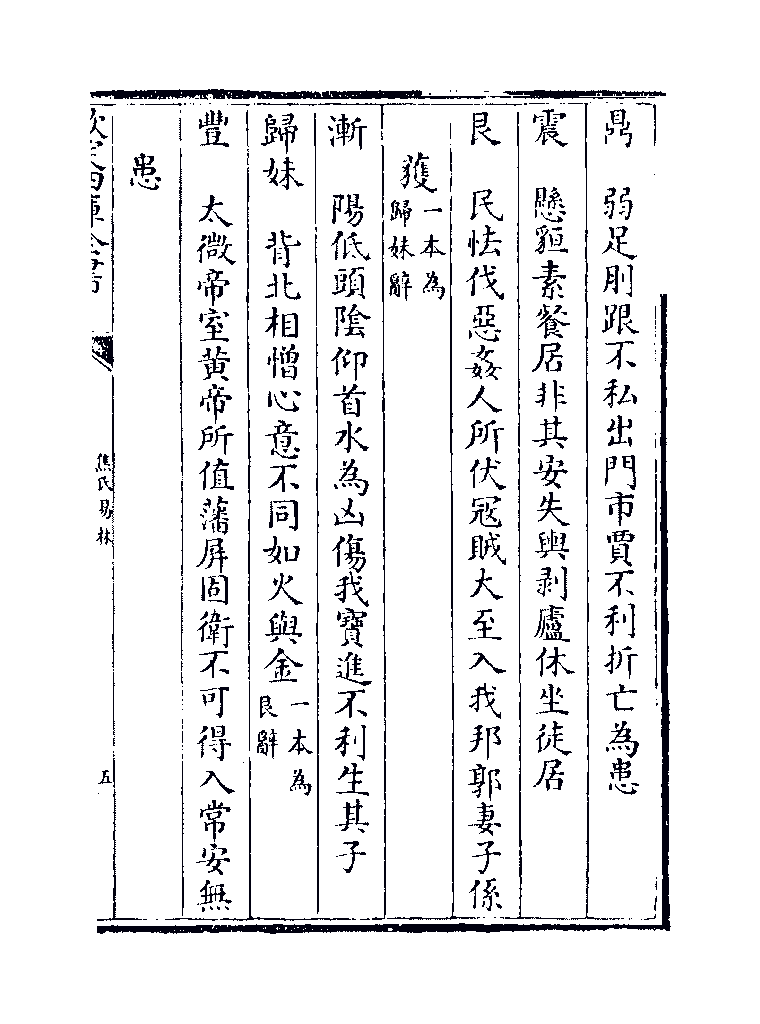 鼎　弱足刖跟不私出門市賈不利折亡為患
震　懸貆素餐居非其安失輿剥廬休坐徙居
艮　民怯伐惡姦人所伏冦賊大至入我邦郭妻子係
獲一本為歸妹辭
漸　陽低頭陰仰首水為凶傷我寶進不利生其子
歸妹　背北相憎心意不同如火與金一本為艮辭
豐　太微帝室黄帝所值藩屏固衛不可得入常安無
患
欽定四庫全書
焦氏易林
五